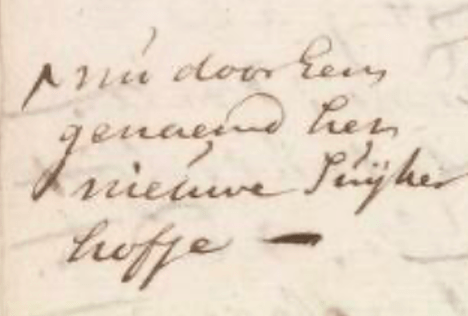 nu door hem
genaemd het
nieuwe Suÿker
hofje —